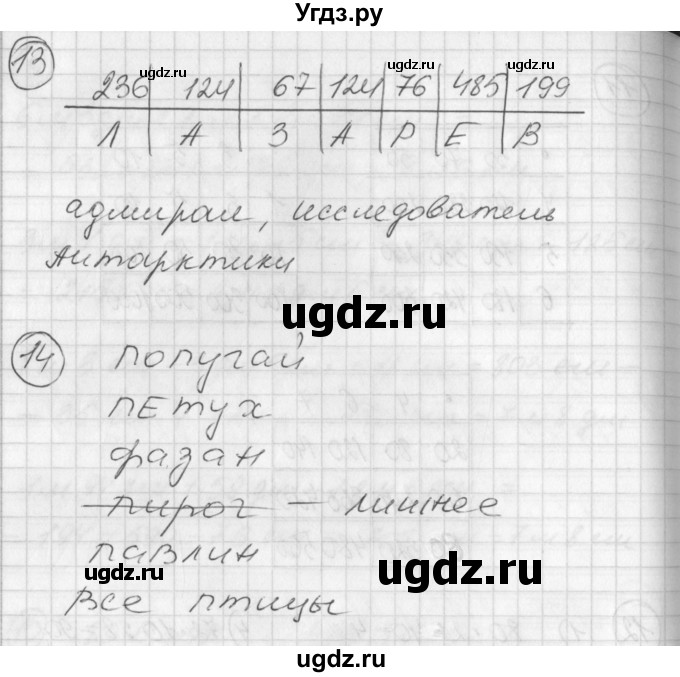 Угдз.ру
13
ugdz.ru
ugdz.ru
ugdz.ru
236 124 67 124 76 485 199
Л А З А Р Е В
адмирал, исследователь
Антарктики
ugdz.ru
14
попугай
петух
фазан
пирог – лишнее
павлин
ugdz.ru
ugdz.ru
все птицы
ugdz.ru